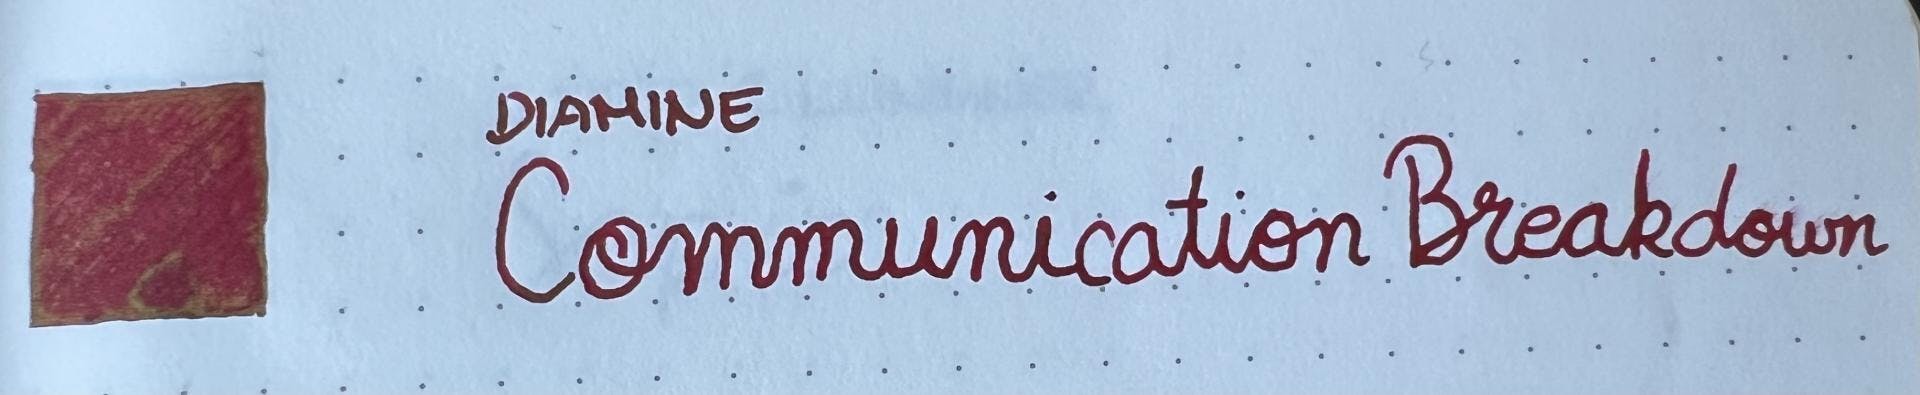 DIAMINE
Communication Breakdown